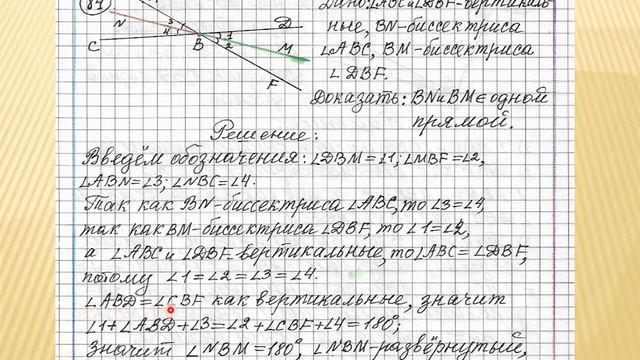 84
Дано: ∠ABC и ∠DBF-вертикаль-
ные, BN-биссектриса
∠ABC, BM-биссектриса
∠DBF.
Доказать: BN и BM ∈ одной
прямой.
N
3
4
C
B
1
2
D
M
F
Решение:
Введём обозначения: ∠DBM=∠1; ∠MBF=∠2,
∠ABN=∠3; ∠NBC=∠4.
Так как BN-биссектриса ∠ABC, то ∠3=∠4,
так как BM-биссектриса ∠DBF, то ∠1=∠2,
а ∠ABC и ∠DBF вертикальные, то ∠ABC=∠DBF,
потому ∠1=∠2=∠3=∠4.
∠ABD=∠CBF как вертикальные, значит
∠1+∠ABD+∠3=∠2+∠CBF+∠4=180°;
Значит ∠NBM=180°, ∠NBM-развёрнутый,